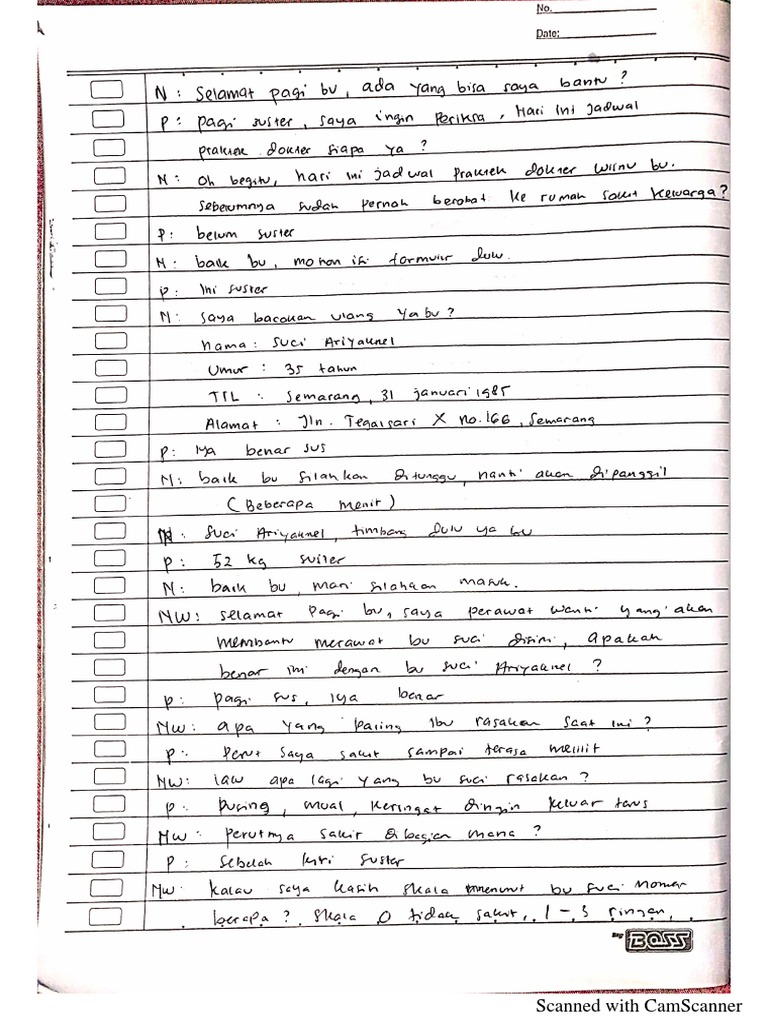 No.
Date:
N : Selamat pagi bu, ada yang bisa saya bantu ?
P : pagi suster, saya ingin Periksa, Hari ini jadwal
praktek dokter siapa ya ?
N : Oh begitu, hari ini jadwal praktek dokter wisnu bu.
sebelumnya sudah pernah berobat ke rumah sakit keluarga ?
P : belum suster
N : baik bu, mohon isi formulir dulu.
P : Ini suster
N : saya bacakan ulang ya bu ?
nama : Suci Ariyaknel
Umur : 35 tahun
TTL : Semarang, 31 januari 1985
Alamat : Jln. Tegalsari X no.166, Semarang
P : Ya benar sus
N : baik bu silahkan ditunggu, nanti akan dipanggil
( Beberapa menit )
N : Suci Ariyaknel, timbang dulu ya bu
P : 52 kg suster
N : baik bu, mari silahkan masuk.
NW : selamat pagi bu, saya perawat wanti yang akan
membantu merawat bu suci disini, apakah
benar ini dengan bu suci Ariyaknel ?
P : pagi sus, iya benar
NW : apa yang paling Ibu rasakan saat ini ?
P : Perut saya sakit sampai terasa melilit
NW : lalu apa lagi yang bu suci rasakan ?
P : pusing, mual, keringat dingin keluar terus
NW : perutnya sakit dibagian mana ?
P : sebelah kiri suster
NW : kalau saya kasih skala menurut bu suci nomer
berapa ? Skala 0 tidak sakit, 1 - 3 ringan,
BOSS
Scanned with CamScanner